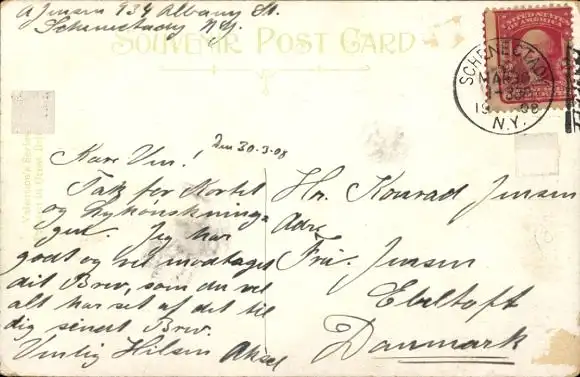 A Jensen 934 Albany St.
Schenectady N.Y.
SOUVENIR POST CARD
UNITED STATES OF AMERICA
SCHENECTADY
MAR 30
1908
N.Y.
Den 30-3-08
Kære Ven!
Tak for Kortet
og Lykønsknin=
gen. Jeg har
godt og vel modtaget
dit Brev, som du vel
alt har set af det til
dig sendt Brev.
Venlig Hilsen Aksel
Hr. Konrad Jensen
Adr.
Fru. Jensen
Ebeltoft
Danmark